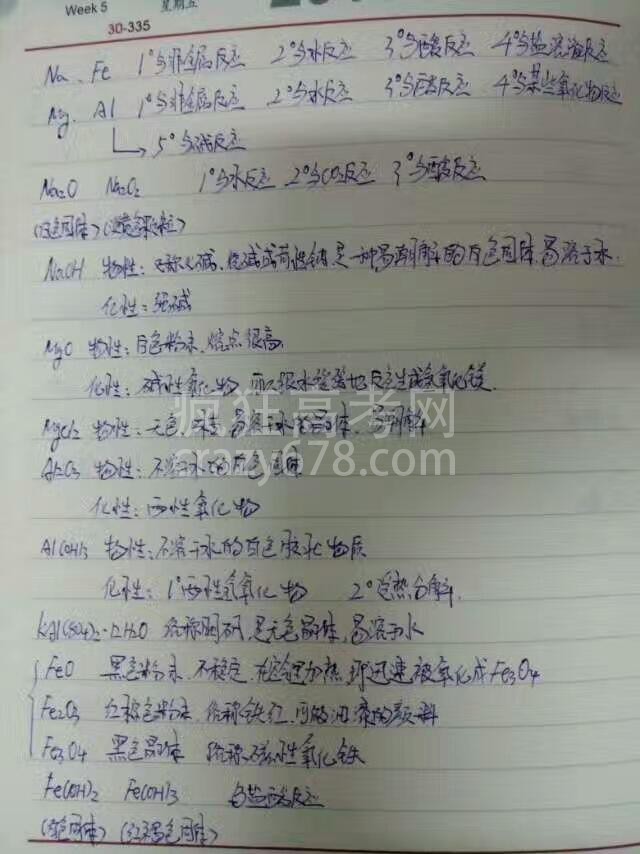 Week 5 星期五
30-335
Na、Fe 1°与非金属反应 2°与水反应 3°与酸反应 4°与盐溶液反应
Mg、Al 1°与非金属反应 2°与水反应 3°与酸反应 4°与某些氧化物反应
5°与碱反应
Na2O Na2O2 1°与水反应 2°与CO2反应 3°与酸反应
(白色固体)(淡黄色颗粒)
NaOH 物性:又称火碱、烧碱或苛性钠,是一种易潮解的白色固体,易溶于水.
化性:强碱
MgO 物性:白色粉末,熔点很高.
化性:碱性氧化物 可以跟水缓慢地反应生成氢氧化镁.
MgCl2 物性:无色、味苦、易溶于水的晶体,易潮解
Al2O3 物性:不溶于水的白色固体
化性:两性氧化物
Al(OH)3 物性:不溶于水的白色胶状物质
化性:1°两性氢氧化物 2°受热分解.
KAl(SO4)2·12H2O 俗称明矾,是无色晶体,易溶于水
FeO 黑色粉末,不稳定,在空气里加热,即迅速被氧化成Fe3O4
Fe2O3 红棕色粉末,俗称铁红,可做油漆的颜料
Fe3O4 黑色晶体 俗称磁性氧化铁
Fe(OH)2 Fe(OH)3 与盐酸反应
(白色固体)(红褐色固体)
疯狂高考网
crazy678.com